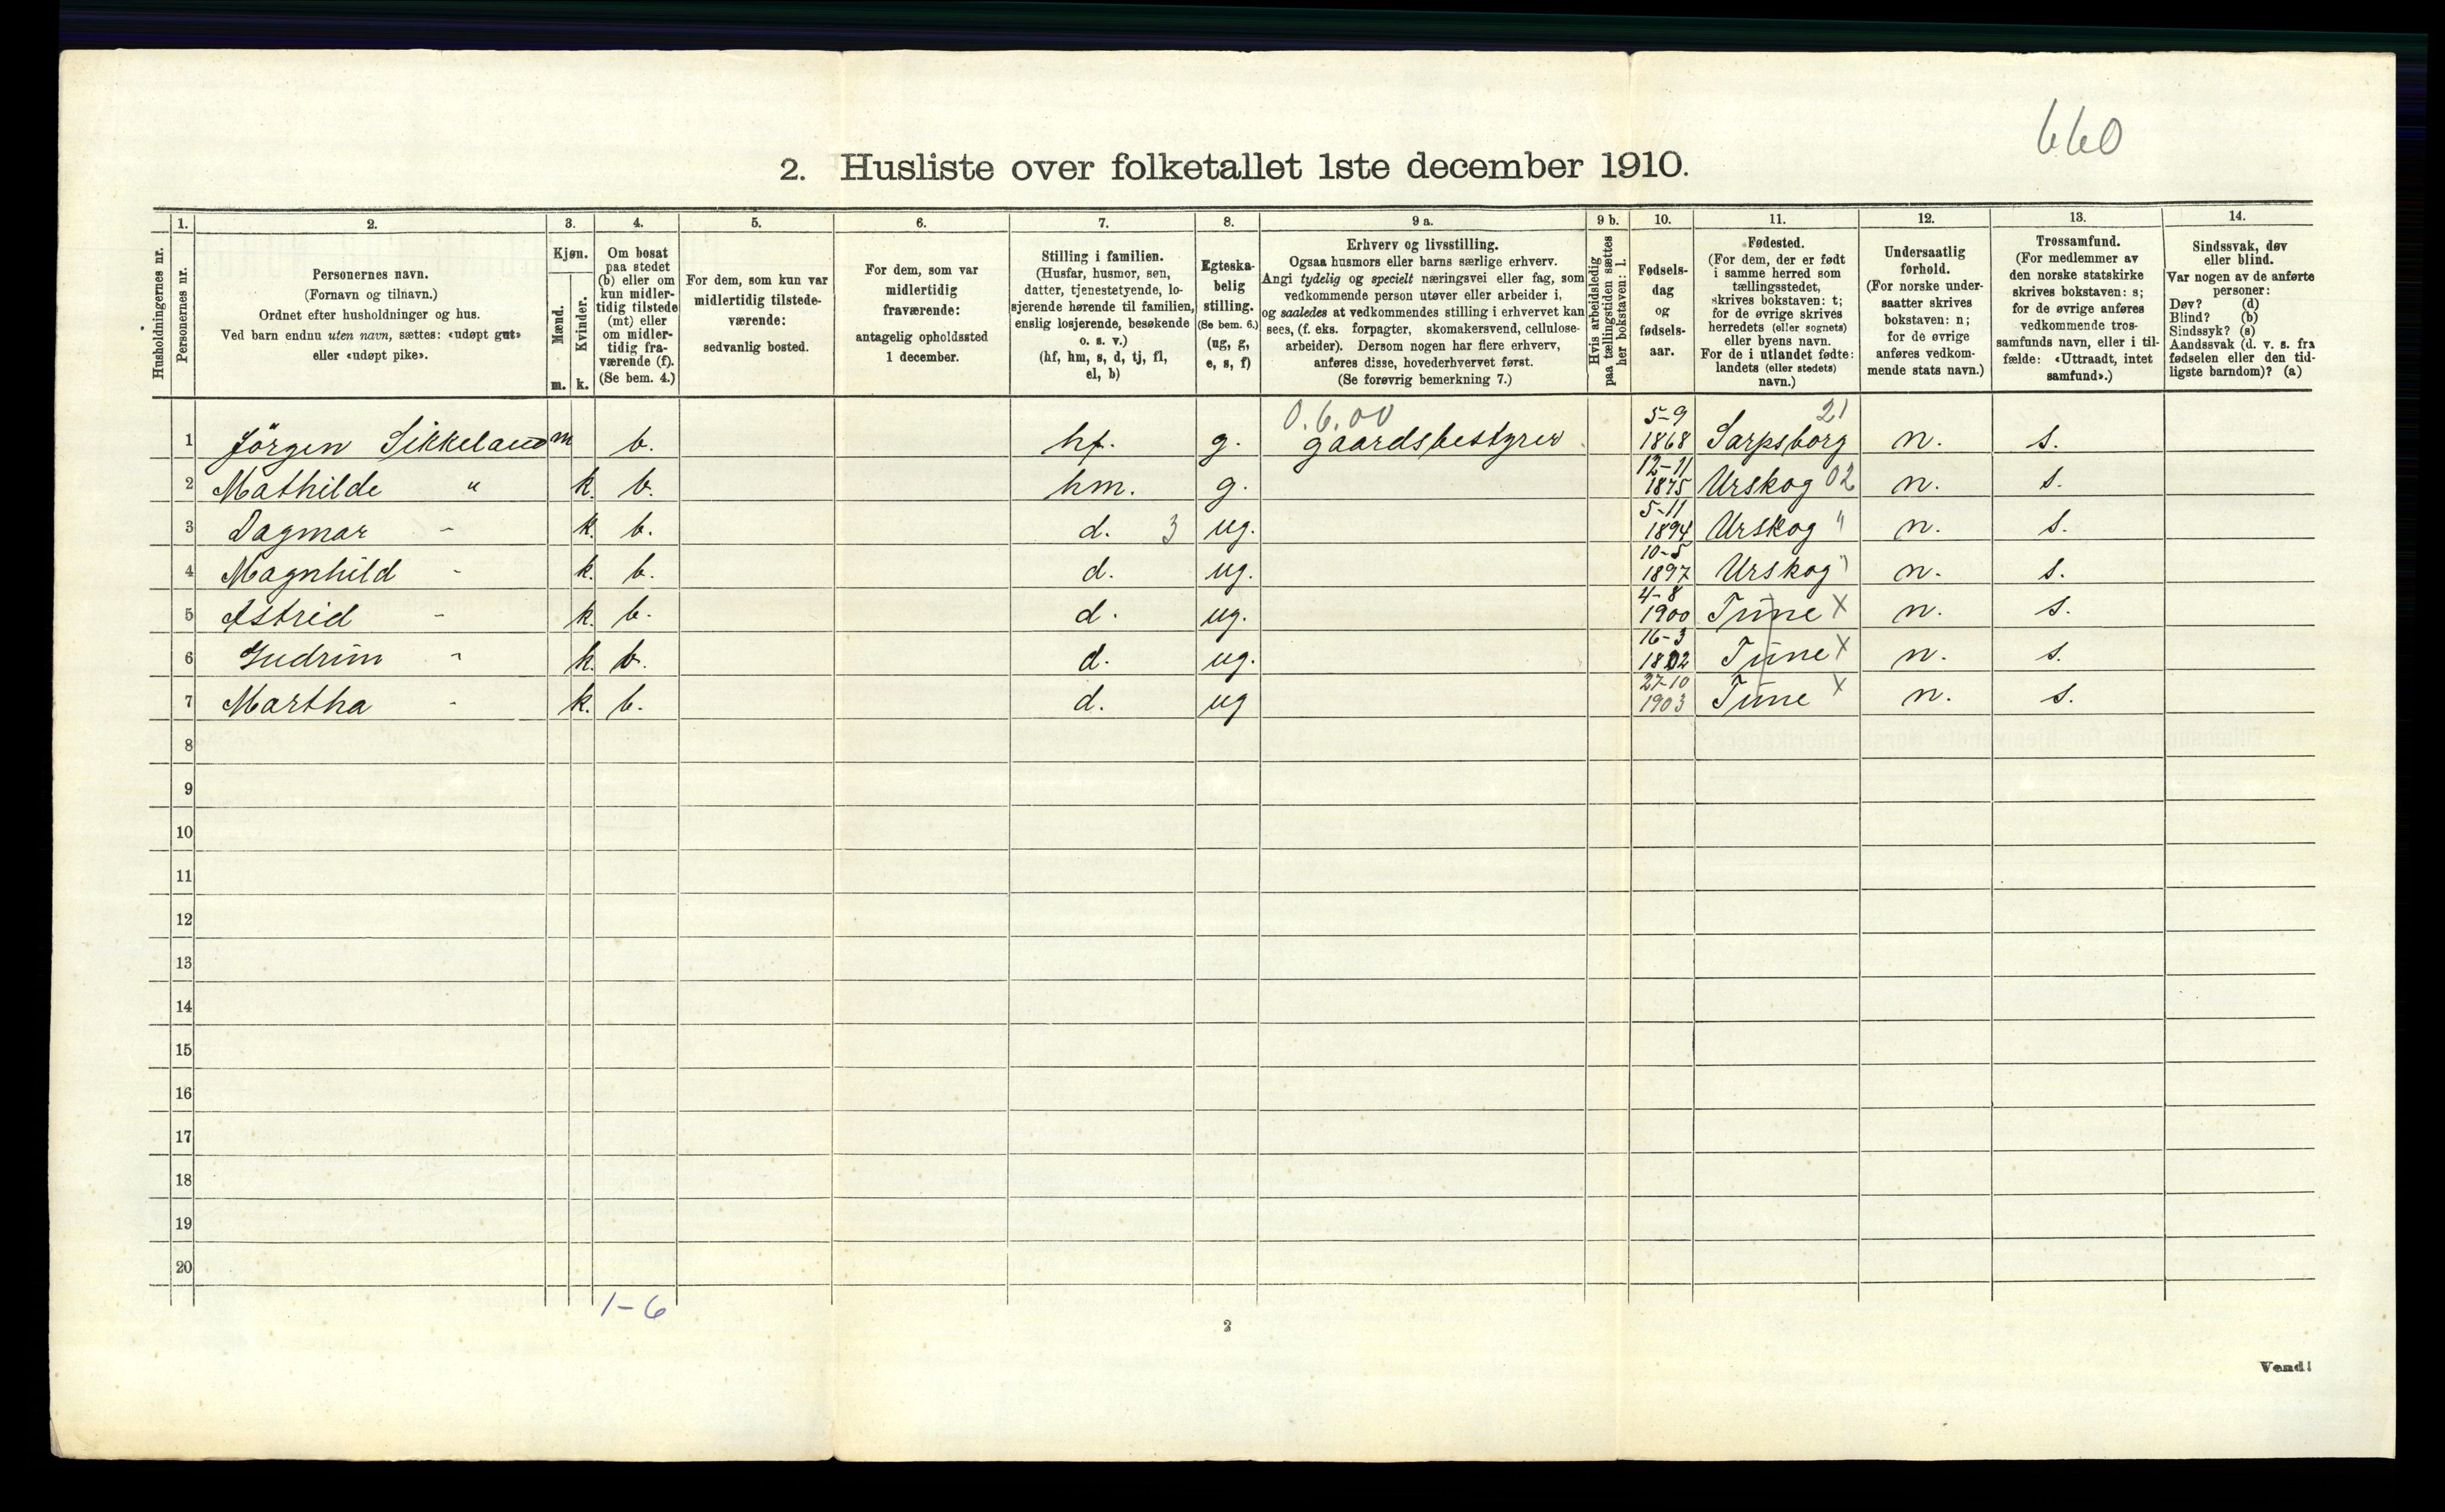 660
2. Husliste over folketallet 1ste december 1910.
Husholdningernes nr.
1.
Personernes nr.
2.
Personernes navn.
(Fornavn og tilnavn.)
Ordnet efter husholdninger og hus.
Ved barn endnu uten navn, sættes: «udøpt gut»
eller «udøpt pike».
3.
Kjøn.
Mænd.
Kvinder.
m. k.
4.
Om bosat
paa stedet
(b) eller om
kun midler-
tidig tilstede
(mt) eller
om midler-
tidig fra-
værende (f).
(Se bem. 4.)
5.
For dem, som kun var
midlertidig tilstede-
værende:
sedvanlig bosted.
6.
For dem, som var
midlertidig
fraværende:
antagelig opholdssted
1 december.
7.
Stilling i familien.
(Husfar, husmor, søn,
datter, tjenestetyende, lo-
sjerende hørende til familien,
enslig losjerende, besøkende
o. s. v.)
(hf, hm, s, d, tj, fl,
el, b)
8.
Egteska-
belig
stilling.
(Se bem. 6.)
(ug, g,
e, s, f)
9 a.
Erhverv og livsstilling.
Ogsaa husmors eller barns særlige erhverv.
Angi tydelig og specielt næringsvei eller fag, som
vedkommende person utøver eller arbeider i,
og saaledes at vedkommendes stilling i erhvervet kan
sees, (f. eks. forpagter, skomakersvend, cellulose-
arbeider). Dersom nogen har flere erhverv,
anføres disse, hovederhvervet først.
(Se forøvrig bemerkning 7.)
9 b.
Hvis arbeidsledig
paa tællingstiden sættes
her bokstaven: l.
10.
Fødsels-
dag
og
fødsels-
aar.
11.
Fødested.
(For dem, der er født
i samme herred som
tællingsstedet,
skrives bokstaven: t;
for de øvrige skrives
herredets (eller sognets)
eller byens navn.
For de i utlandet fødte:
landets (eller stedets)
navn.)
12.
Undersaatlig
forhold.
(For norske under-
saatter skrives
bokstaven: n;
for de øvrige
anføres vedkom-
mende stats navn.)
13.
Trossamfund.
(For medlemmer av
den norske statskirke
skrives bokstaven: s;
for de øvrige anføres
vedkommende tros-
samfunds navn, eller i til-
fælde: «Uttraadt, intet
samfund».)
14.
Sindssvak, døv
eller blind.
Var nogen av de anførte
personer:
Døv? (d)
Blind? (b)
Sindssyk? (s)
Aandssvak (d. v. s. fra
fødselen eller den tid-
ligste barndom)? (a)
0.6.00 5-9 21
1 Jörgen Sikkeland m b. hf. g. gaardsbestyrer 1868 Sarpsborg n. s.
12-11
2 Mathilde " k. b. hm. g. 1875 Urskog 02 n. s.
5-11
3 Dagmar - k. b. d. 3 ug. 1894 Urskog " n. s.
10-5
4 Magnhild - k. b. d. ug. 1897 Urskog " n. s.
4-8
5 Astrid - k. b. d. ug. 1900 Tune x n. s.
16-3
6 Gudrun - k. b. d. ug. 1802 Tune x n. s.
27-10
7 Martha - k. b. d. ug 1903 Tune x n. s.
8
9
10
11
12
13
14
15
16
17
18
19
20
1-6
2
Vend!